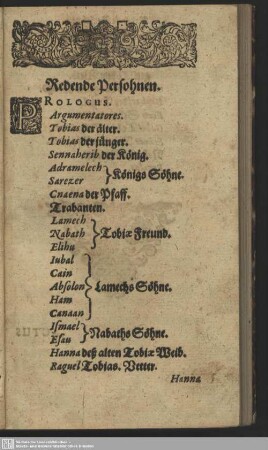 Redende Persohnen.
PROLOGUS.
Argumentatores.
Tobias der älter.
Tobias der jünger.
Sennaherib der König.
Adramelech
Sarezer } Königs Söhne.
Cnaena der Pfaff.
Trabanten.
Lamech
Nabath } Tobiæ Freund.
Elihu
Iubal
Cain
Absolon } Lamechs Söhne.
Ham
Canaan
Ismael
Esau } Nabaths Söhne.
Hanna deß alten Tobiæ Weib.
Raguel Tobias. Vetter.
Hanna